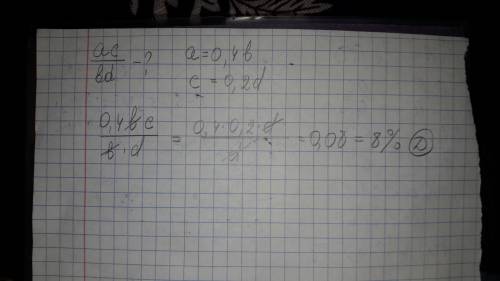 ac/bd - ? a = 0,4b
c = 0,2d
0,4bc/b·d = 0,4·0,2·d/d = 0,08 = 8% D